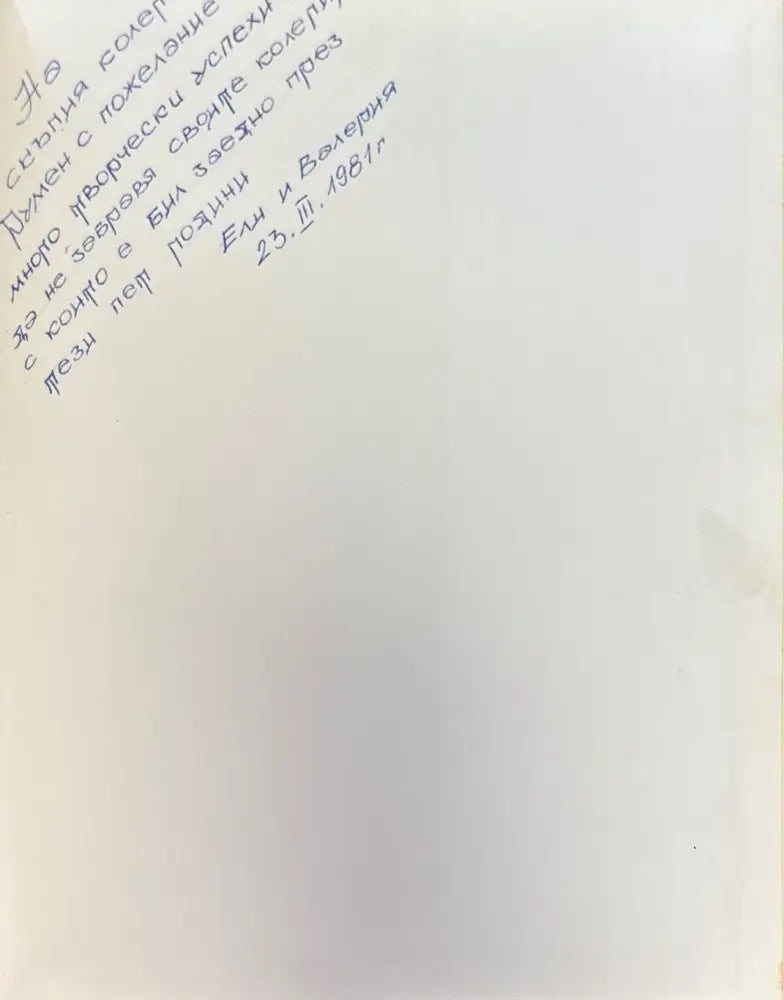 На
скъпия колег
Румен с пожелание
много творчески успехи
да не забравя своите колеги,
с които е бил заедно през
тези пет години
Ели и Валерия
23. III. 1981 г